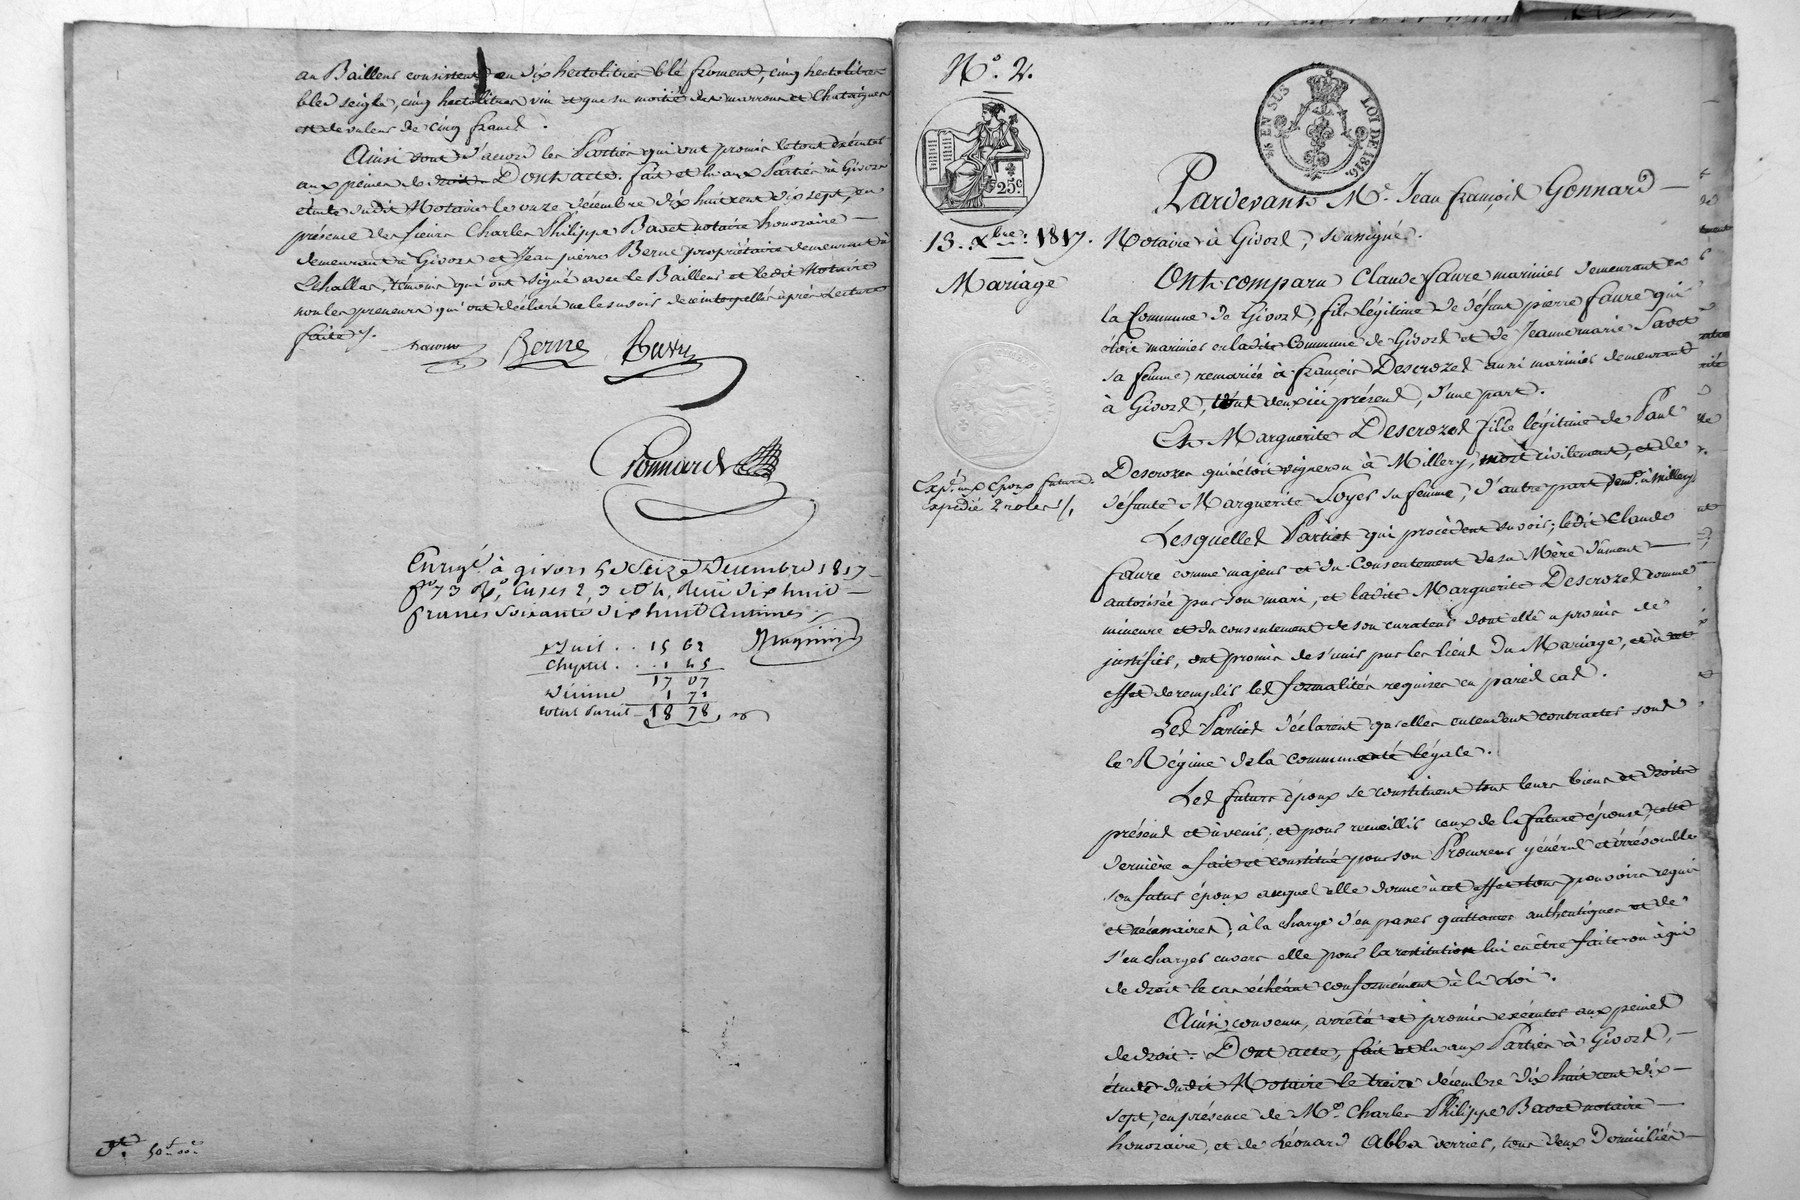 au Bailleur consistent en dix hectolitres blé froment, cinq hectolitres
bled seigle, cinq hectolitres vin et que sa moitié des marrons et Chataignes
est de valeur de cinq francs.
Ainsi sont d'accord les Parties qui ont promis le tout exécuter
aux peines de droit. Dont acte. fait et lu aux Parties à Givors
étude dudit Notaire le onze décembre dix huit cent dix sept, en
présence des sieurs Charles Philippe Bavet notaire honoraire
demeurant à Givors et Jean pierre Berne propriétaire demeurant à
Echallas, témoins qui ont signé avec le Bailleur et ledit Notaire
non les preneurs qui ont déclaré ne le savoir de ce interpellés après Lecture
faite /.
Berne
Gonnard
Enregé à givors le Seize Décembre 1817
fo 73 Ro, Cases 2, 3 et 4, Reçu dix huit
francs Soixante dix huit Centimes /.
15 62
Cheptel . . 1 45
17 07
Dixime 1 71
18 78
No. 2.
EN SUS
LOI DE 1816.
25c
13. Xbre. 1817.
Mariage
Expéon aux Epoux futurs
Expédié 2 roles /.
Pardevant Me. Jean françois Gonnard
Notaire à Givors, soussigné.
Ont comparu Claude faure marinier demeurant en
la Commune de Givors, fils légitime de défunt pierre faure qui
étoit marinier en ladite Commune de Givors et de Jeanne marie Favet
sa femme, remariée à françois Descrozes aussi marinier demeurant
à Givors, tous deux ici présens, d'une part.
Et Marguerite Descrozes fille légitime de Paul
Descrozes qui étoit vigneron à Millery, mort civilement, et de
défunte Marguerite Loyes sa femme, d'autre part demt. à Millery
Lesquelles Parties qui procèdent savoir; ledit Claude
faure comme majeur et du Consentement de sa Mère dûment
autorisée par son mari, et ladite Marguerite Descrozes comme
mineure et du consentement de son curateur dont elle a promis de
justifier, ont promis de s'unir par les liens du Mariage, et à cet
effet de remplir les formalités requises en pareil cas.
Les Parties déclarent qu'elles entendent contracter sous
le Régime de la communauté légale.
Les futurs époux se constituent tous leurs biens et droits
présens et à venir, et pour recueillir ceux de la future épouse, cette
dernière a fait et constitué pour son Procureur général et irrévocable
son futur époux auquel elle donne à cet effet tous pouvoirs requis
et nécessaires, à la charge d'en passer quittances authentiques et de
s'en charger envers elle pour la restitution lui en être faite ou à qui
de droit le cas échéant conformément à la Loi.
Ainsi convenu, arrêté et promis exécuter aux peines
de droit. Dont acte, fait et lu aux Parties à Givors,
étude dudit Notaire le treize décembre dix huit cent dix
sept, en présence de Me. Charles Philippe Bavet notaire
honoraire, et de Léonard Abba verrier, tous deux domiciliés